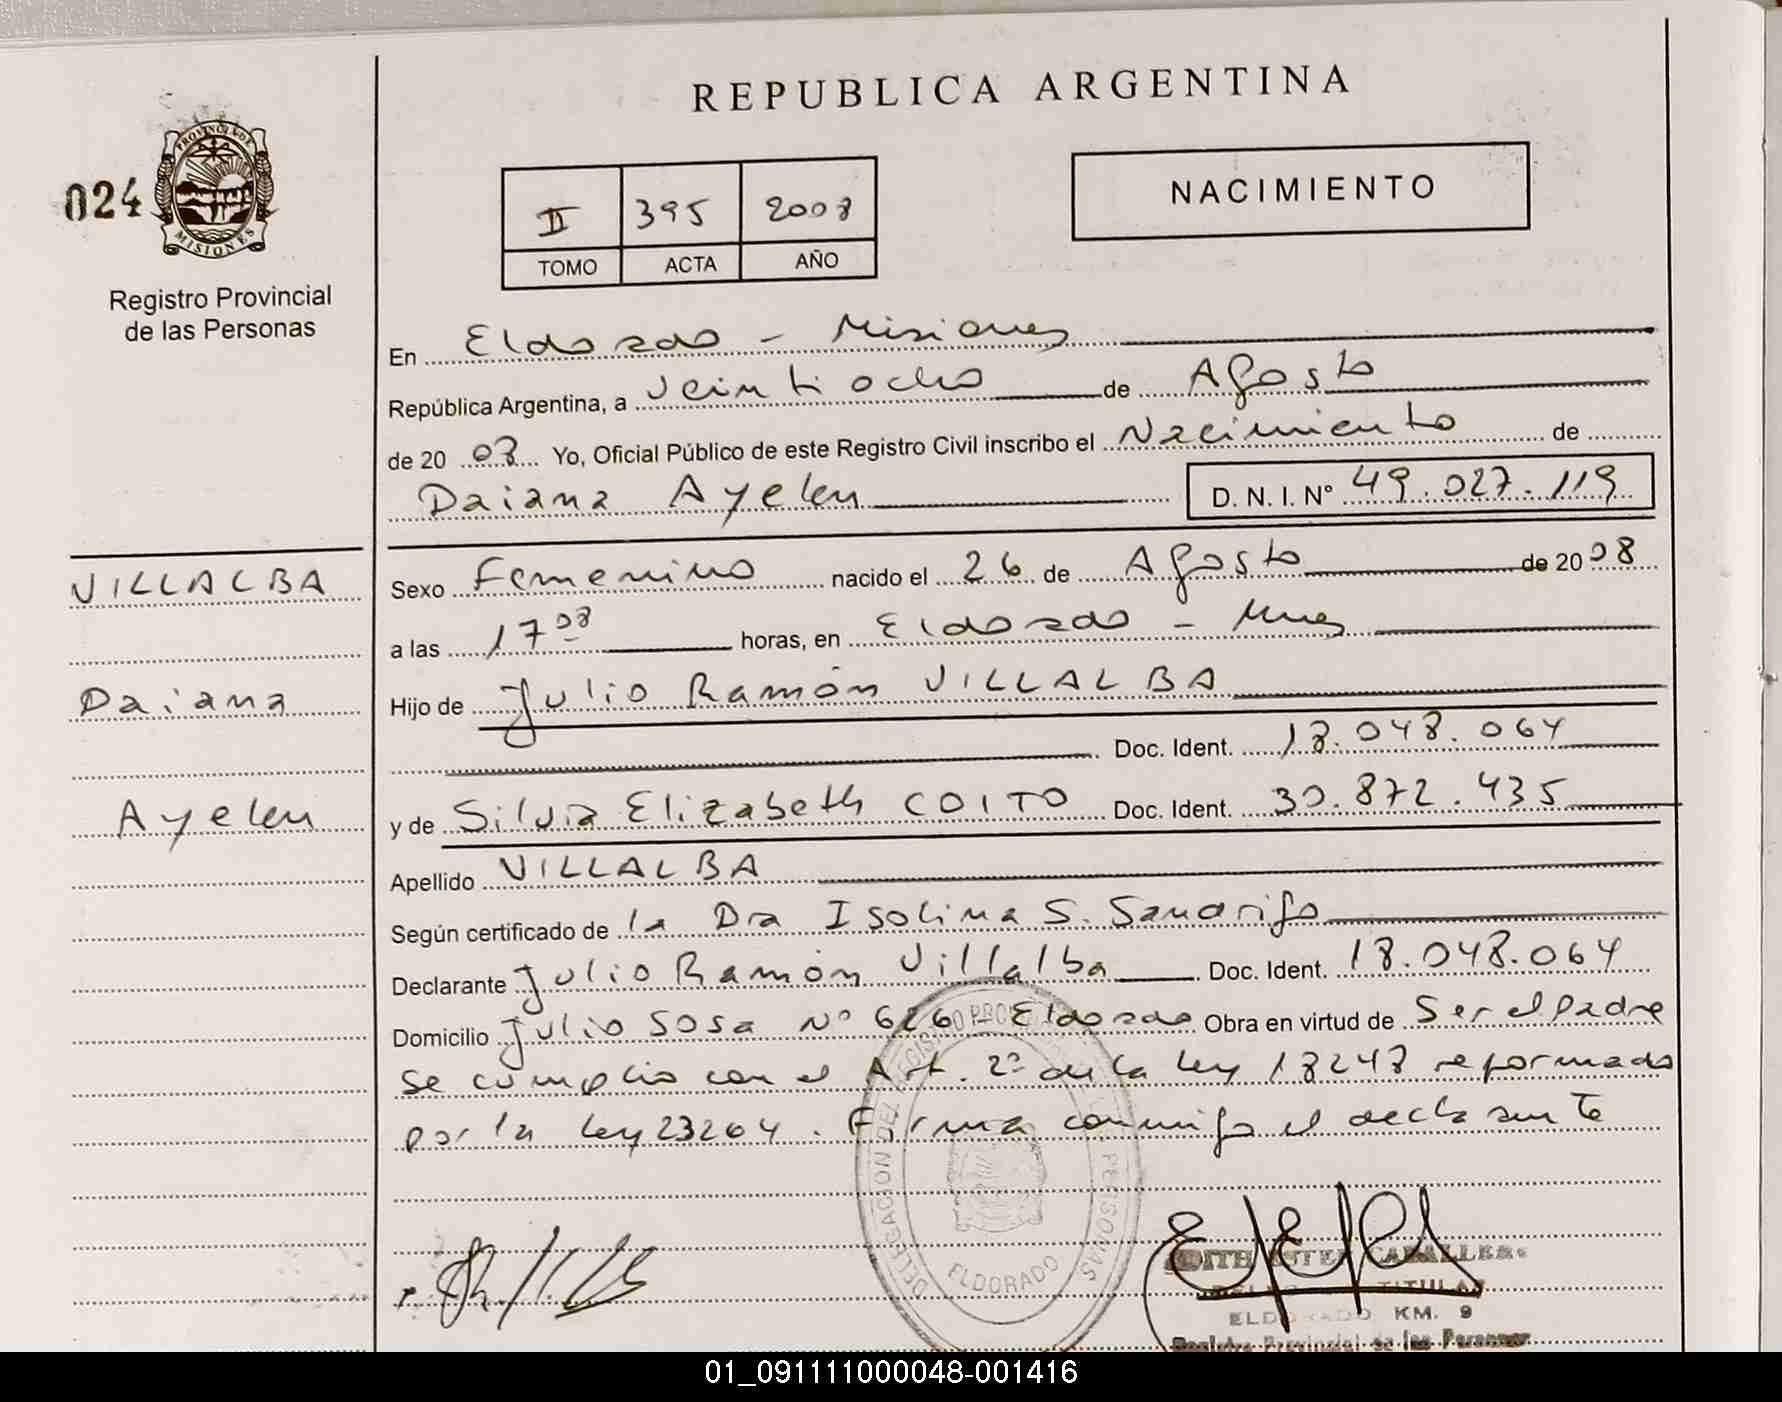 REPUBLICA ARGENTINA
024
PROVINCIA DE
MISIONES
Registro Provincial
de las Personas
II 395 2008
TOMO ACTA AÑO
NACIMIENTO
En Eldorado - Misiones
República Argentina, a veintiocho de Agosto
de 20 08 Yo, Oficial Público de este Registro Civil inscribo el Nacimiento de
Daiana Ayelen D. N. I. Nº 49.027.119
VILLALBA
Daiana
Ayelen
Sexo Femenino nacido el 26 de Agosto de 20 08
a las 17 08 horas, en Eldorado - Mnes
Hijo de Julio Ramón VILLALBA
Doc. Ident. 18.048.064
y de Silvia Elizabeth COITO Doc. Ident. 30.872.435
Apellido VILLALBA
Según certificado de la Dra Isolina S. Sandrigo
Declarante Julio Ramón Villalba Doc. Ident. 18.048.064
Domicilio Julio Sosa Nº 626 Eldorado Obra en virtud de Ser el Padre
se cumplio con el Art. 2º de la Ley 18248 reformado
por la Ley 23264. Firma conmigo el declarante
DELEGACION DEL REGISTRO PERSONAS
ELDORADO
EDITH ESTER CABALLERO
TITULAR
ELDORADO KM. 9
Registro Provincial de las Personas
01_091111000048-001416